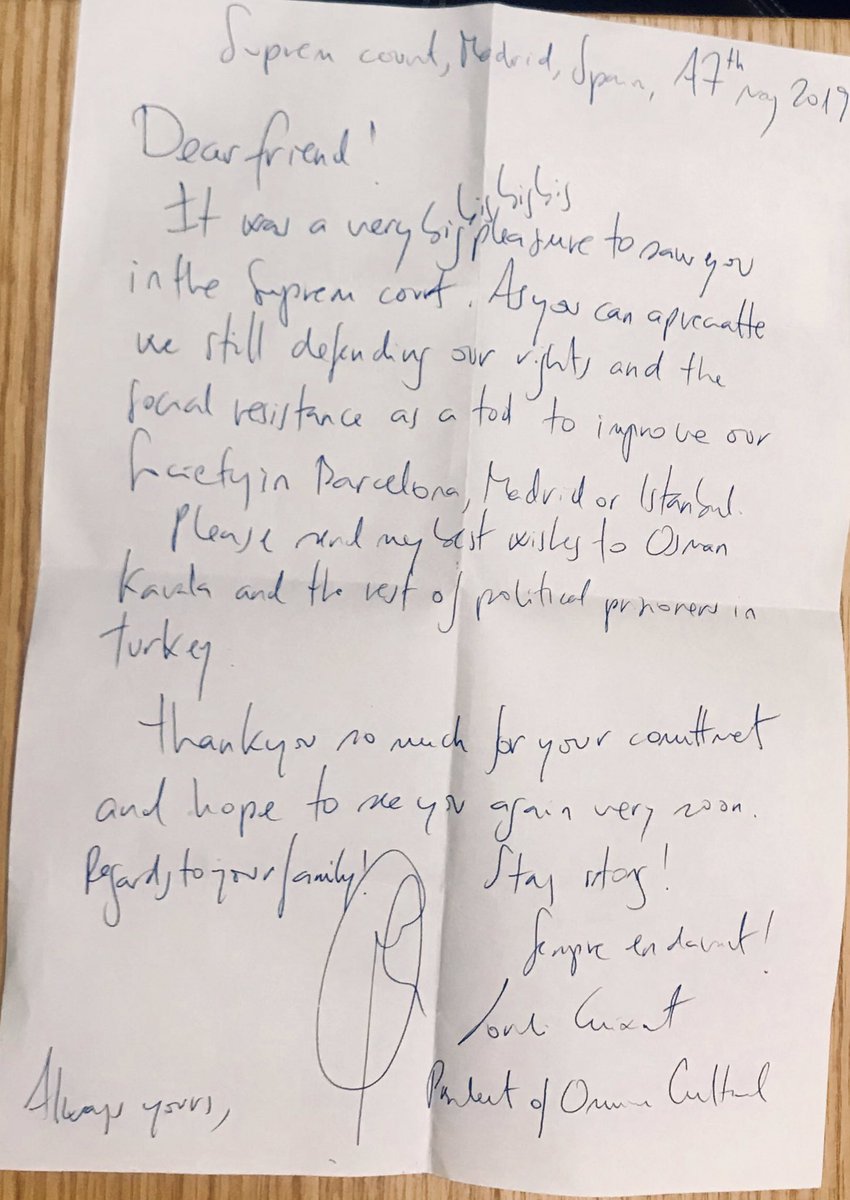 Suprem court, Madrid, Spain, 17th may 2019
Dear friend!
big big big
It was a very big pleasure to saw you
in the Suprem court. As you can apreciatte
we still defending our rights and the
social resistance as a tool to improve our
Society in Barcelona, Madrid or Istanbul.
Please send my best wishes to Osman
Kavala and the rest of political prisoners in
Turkey.
Thank you so much for your
and hope to see you again very soon.
Regards to your family! Stay strong!
Sempre endavant!
Jordi Cuixart
President of Omnium Cultural
Always yours,